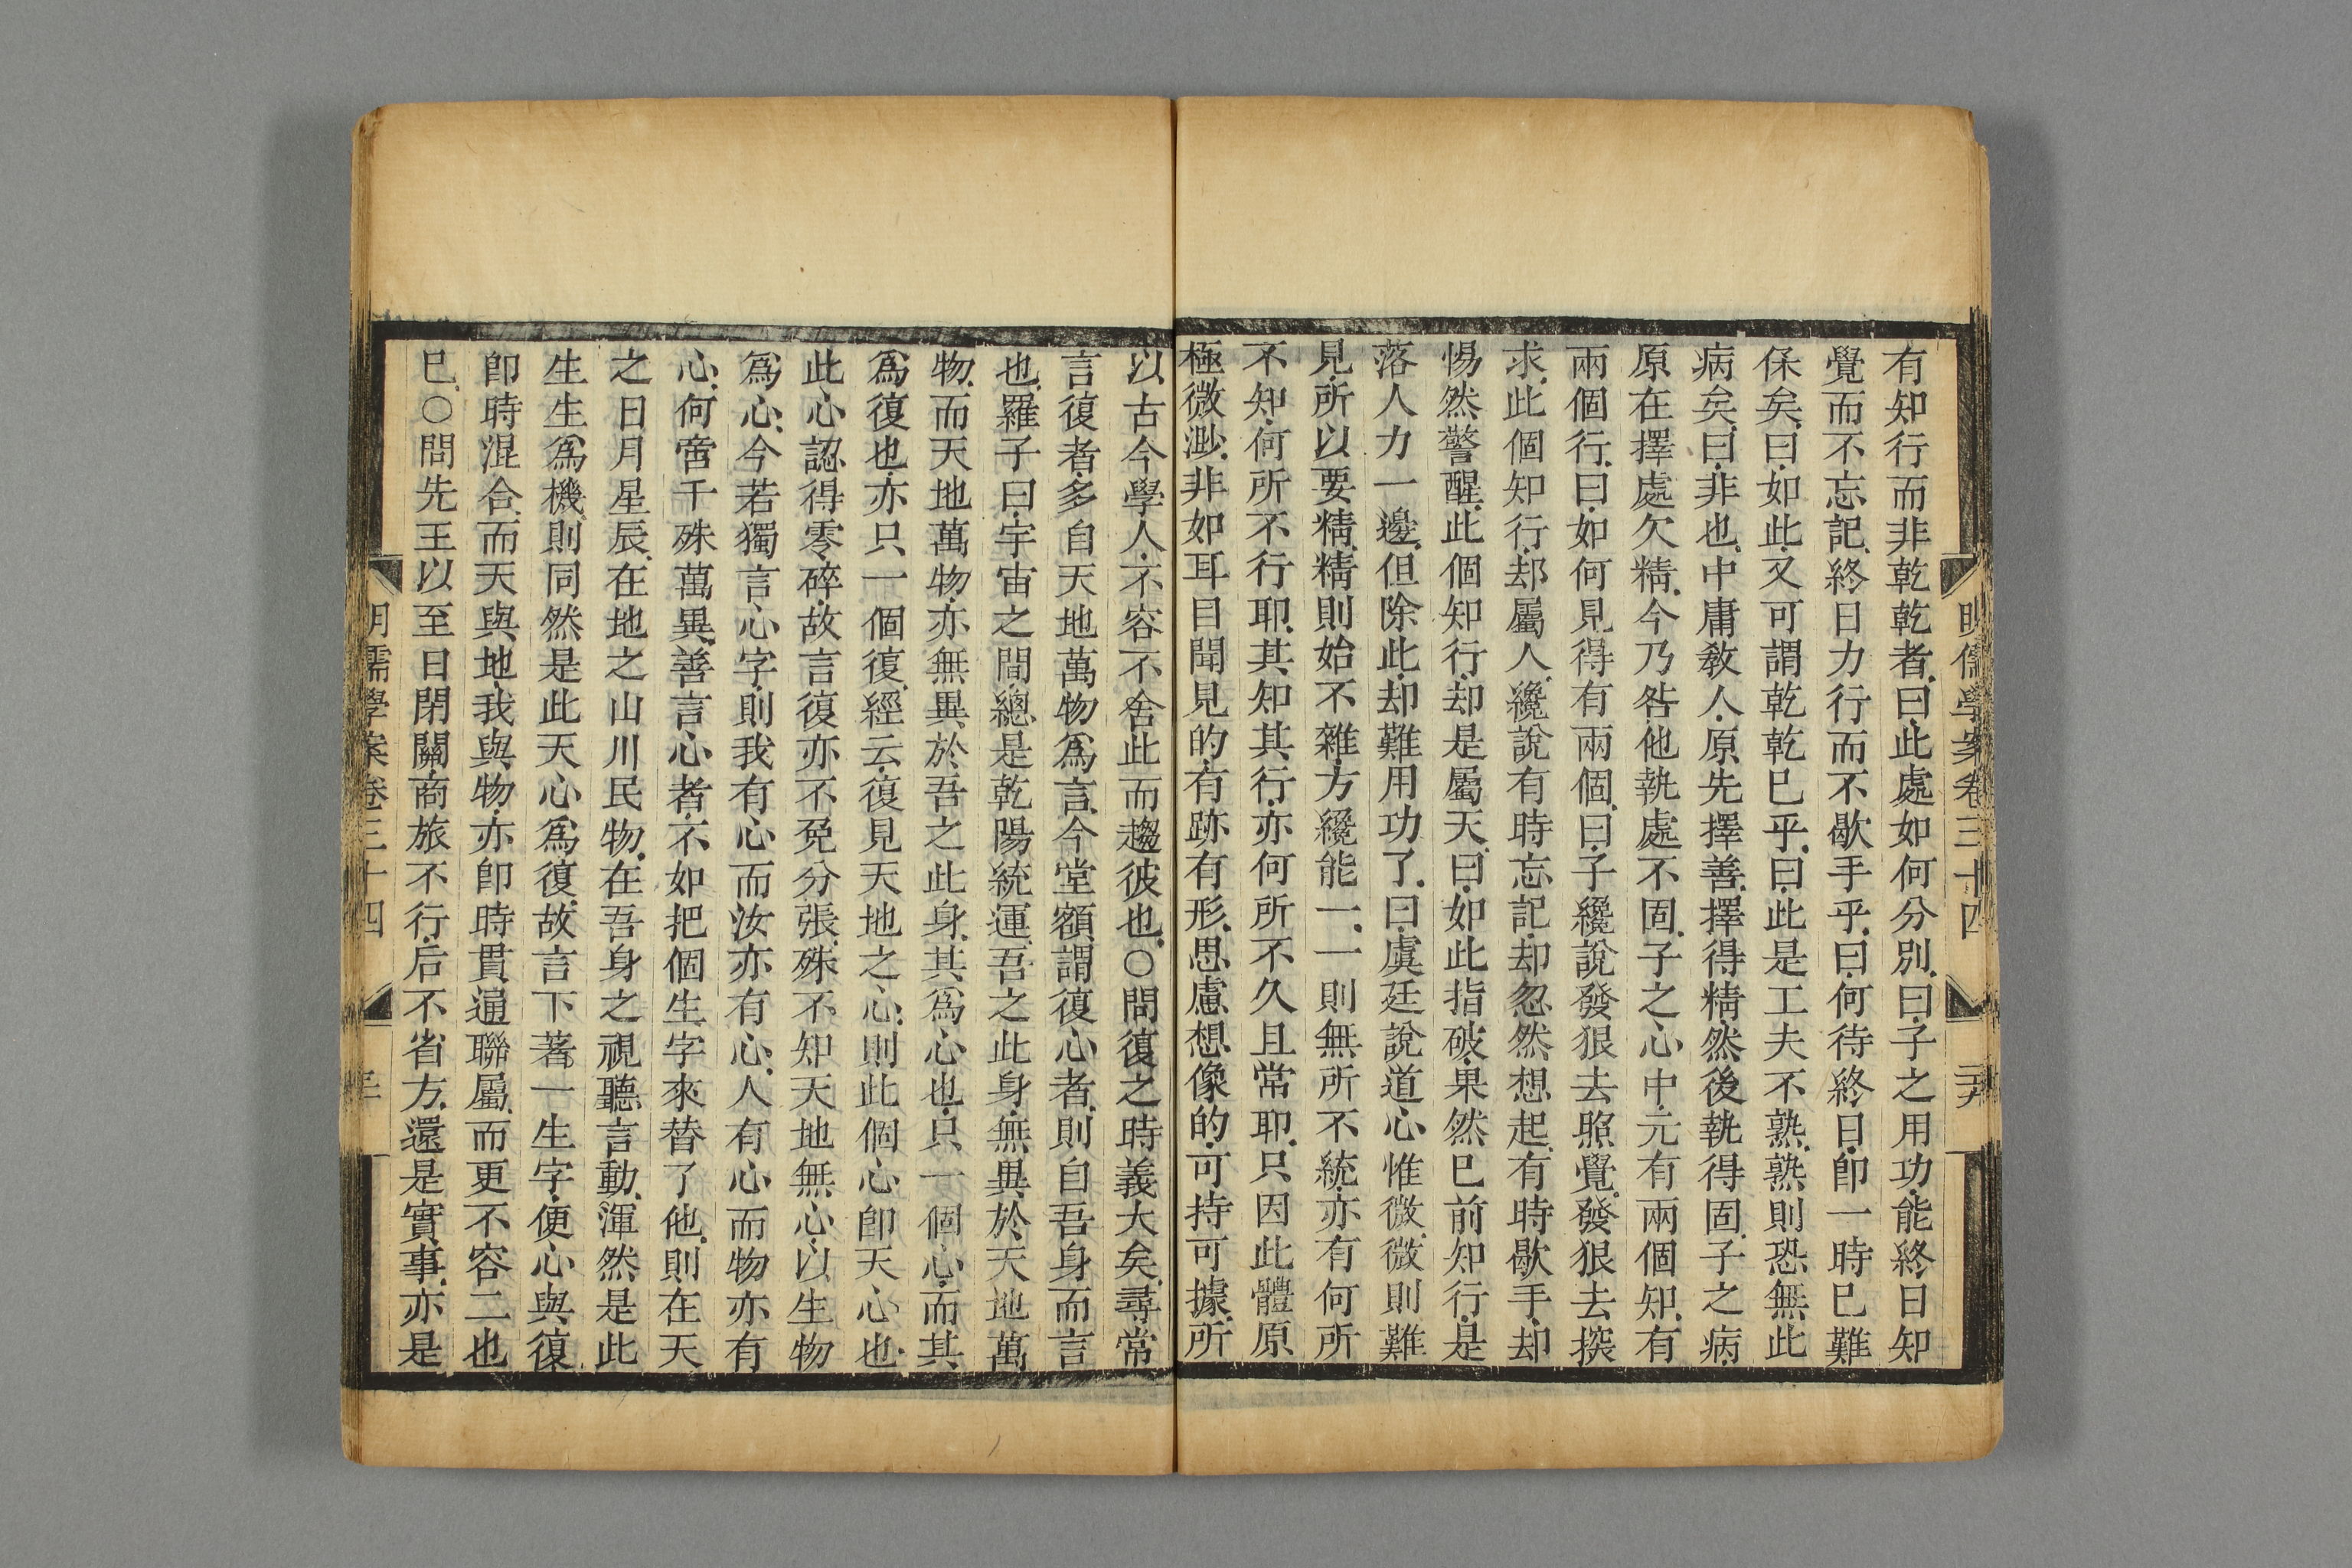 明儒學案卷三十四
有知行而非乾乾者曰此處如何分別曰子之用功能終日知
覺而不忘記終日力行而不歇手乎曰何待終日卽一時已難
保矣曰如此又可謂乾乾已乎曰此是工夫不熟熟則恐無此
病矣曰非也中庸敎人原先擇善擇得精然後執得固子之病
原在擇處欠精今乃咎他執處不固子之心中元有兩個知有
兩個行曰如何見得有兩個曰子纔說發狠去照覺發狠去探
求此個知行却屬人纔說有時忘記却忽然想起有時歇手却
惕然警醒此個知行却是屬天曰如此指破果然已前知行是
落人力一邊但除此却難用功了曰虞廷說道心惟微微則難
見所以要精精則始不雜方纔能一一則無所不統亦有何所
不知何所不行耶其知其行亦何所不久且常耶只因此體原
極微渺非如耳目聞見的有跡有形思慮想像的可持可據所
以古今學人不容不舍此而趨彼也○問復之時義大矣尋常
言復者多自天地萬物爲言今堂額謂復心者則自吾身而言
也羅子曰宇宙之間總是乾陽統運吾之此身無異於天地萬
物而天地萬物亦無異於吾之此身其爲心也只一個心而其
爲復也亦只一個復經云復見天地之心則此個心卽天心也
此心認得零碎故言復亦不免分張殊不知天地無心以生物
爲心今若獨言心字則我有心而汝亦有心人有心而物亦有
心何啻千殊萬異善言心者不如把個生字來替了他則在天
之日月星辰在地之山川民物在吾身之視聽言動渾然是此
生生爲機則同然是此天心爲復故言下著一生字便心與復
卽時混合而天與地我與物亦卽時貫通聯屬而更不容二也
已○問先王以至日閉關商旅不行后不省方還是實事亦是
明儒學案卷三十四